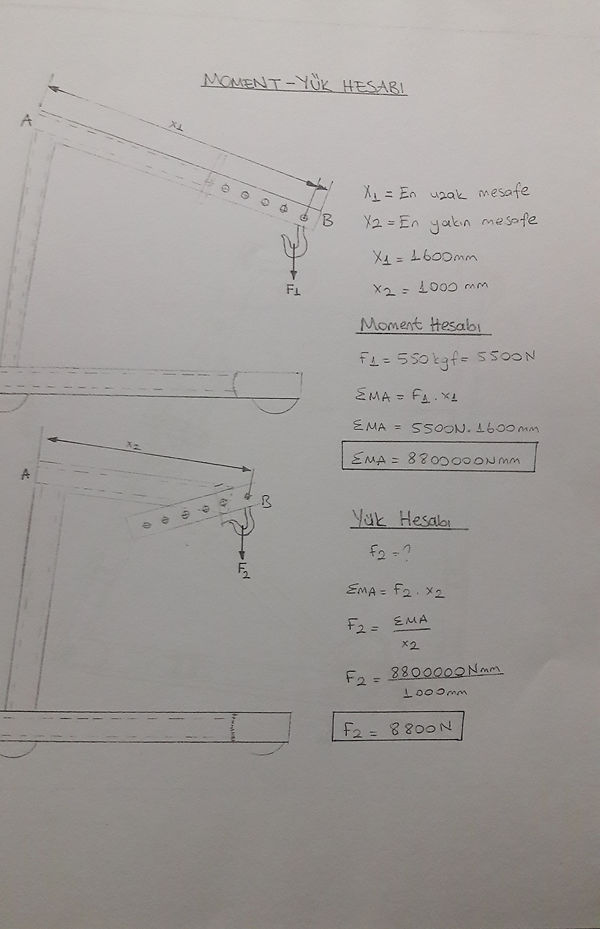 MOMENT-YÜK HESABI
A
x1
B
F1
X1 = En uzak mesafe
X2 = En yakın mesafe
X1 = 1600mm
x2 = 1000 mm
Moment Hesabı
F1 = 550kgf = 5500N
ΣMA = F1 . x1
ΣMA = 5500N. 1600mm
ΣMA = 8800000Nmm
x2
A
B
F2
Yük Hesabı
F2 = ?
ΣMA = F2 . x2
F2 = ΣMA
x2
F2 = 8800000Nmm
1000mm
F2 = 8800N